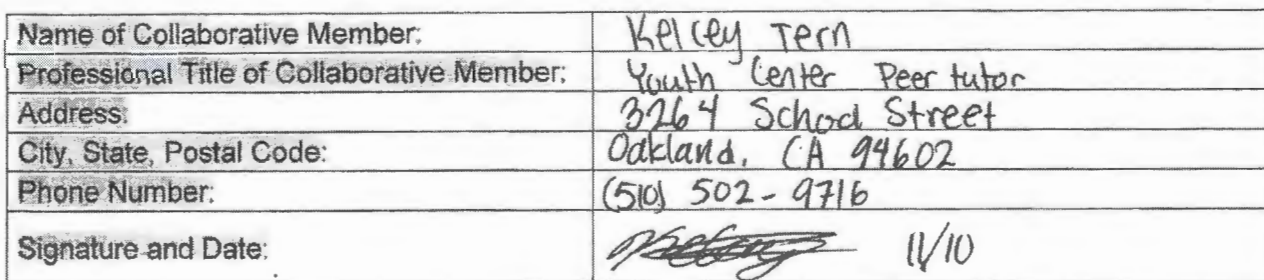 Name of Collaborative Member: Kelcey Tern
Professional Title of Collaborative Member: Youth Center Peer tutor
Address: 3264 School Street
City, State, Postal Code: Oakland, CA 94602
Phone Number: (510) 502-9716
Signature and Date: 11/10